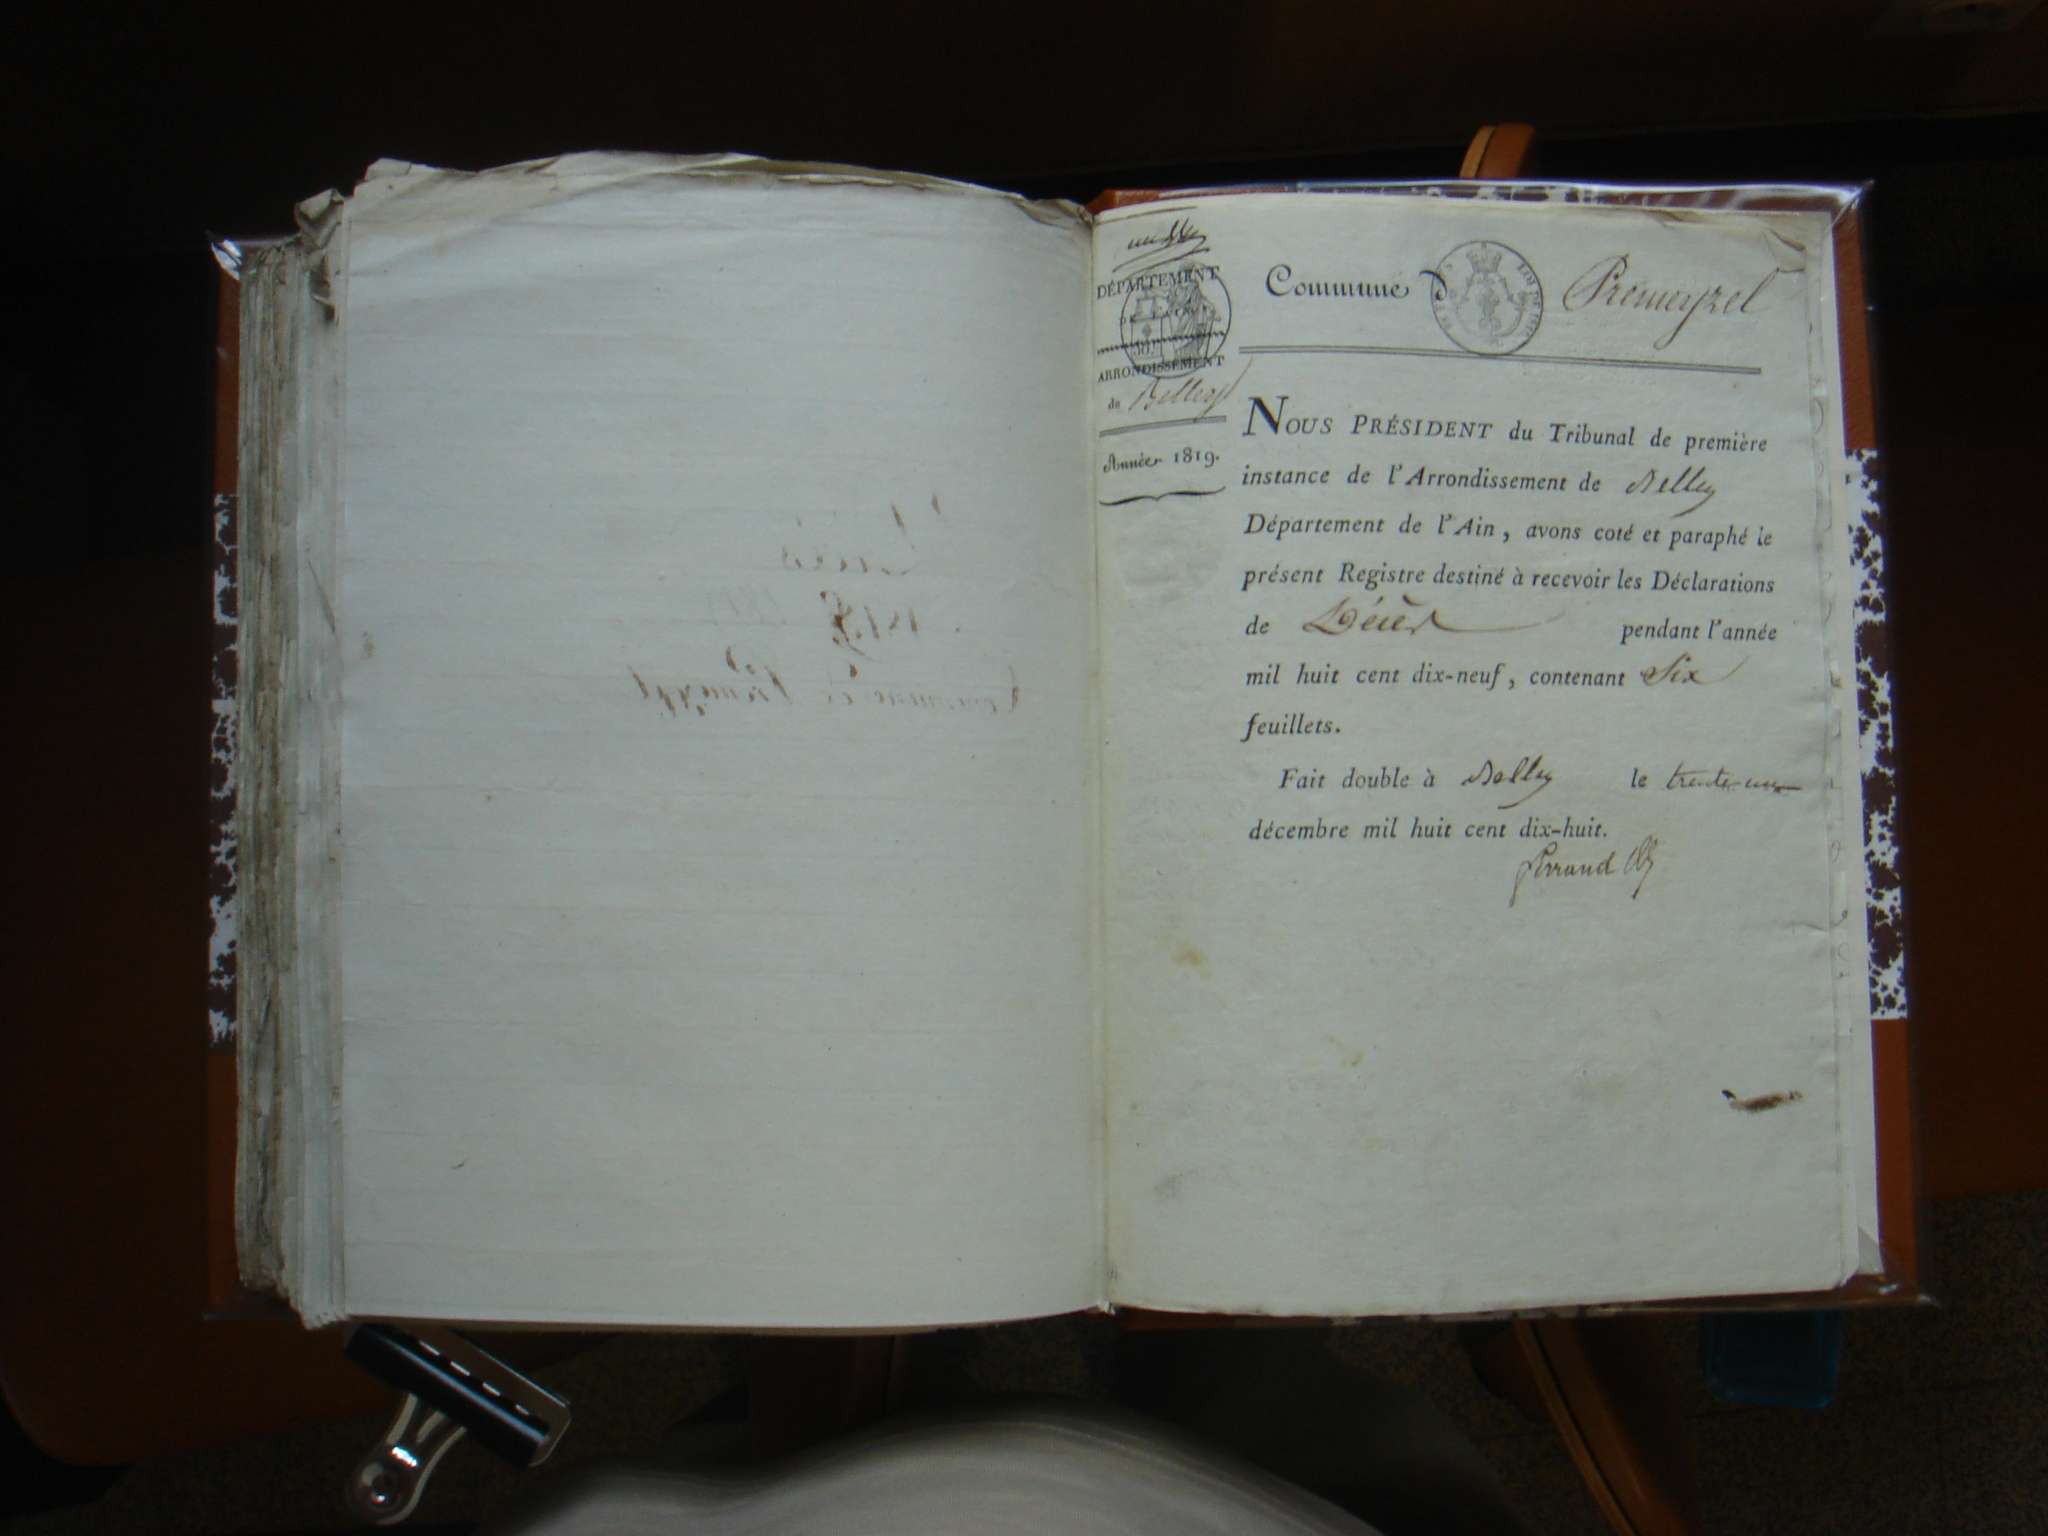 DÉPARTEMENT
DE L'AIN.
ARRONDISSEMENT
de Belley
Année 1819.
Commune de Prémeyzel
NOUS PRÉSIDENT du Tribunal de première
instance de l'Arrondissement de Belley
Département de l'Ain, avons coté et paraphé le
présent Registre destiné à recevoir les Déclarations
de Décès pendant l'année
mil huit cent dix-neuf, contenant Six
feuillets.
Fait double à Belley le trente-un
décembre mil huit cent dix-huit.